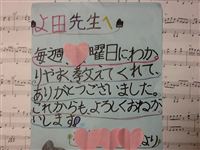 よ田先生へ
毎週 曜日にわか
りやすく教えてくれて、
ありがとうございました。
これからも、よろしくおねが
いします
より